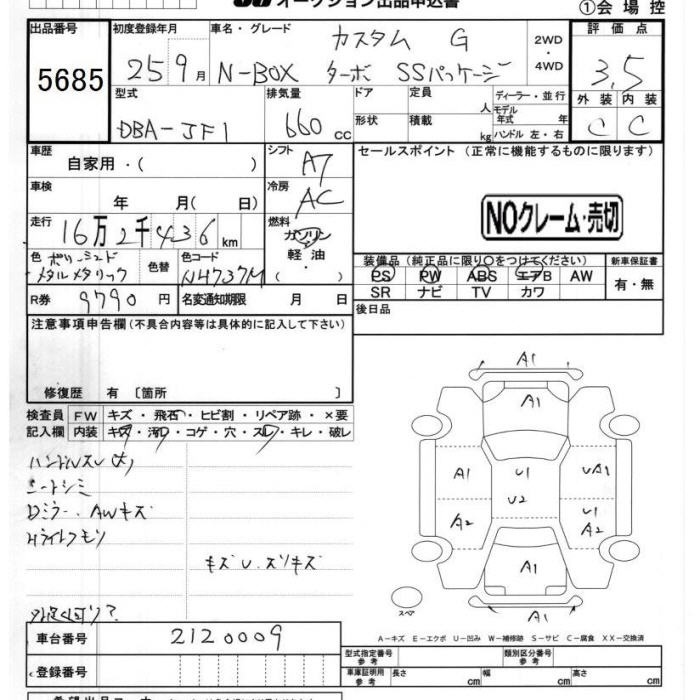 オークション出品申込書
①会場控
出品番号
5685
初度登録年月
25 9月
車名・グレード
カスタム G
N-BOX ターボ SSパッケージ
2WD
・
4WD
評価点
3.5
外装 内装
C C
型式
DBA-JF1
排気量
660 cc
ドア
形状
定員 人
積載 kg
ディーラー・並行
モデル年式 年
ハンドル 左・右
車歴
自家用・( )
シフト
A7
セールスポイント (正常に機能するものに限ります)
車検
年 月( 日)
冷房
AC
NOクレーム・売切
走行
16万2千436km
燃料
ガソリン
軽油
( )
色
メタルメタリック
色替
色コード
NH737M
装備品(純正品に限り○をつけてください)
PS PW ABS エアB AW
SR ナビ TV カワ
新車保証書
有・無
R券
9790円
名変通知期限 月 日
後日品
注意事項申告欄(不具合内容等は具体的に記入して下さい)
修復歴 有〔箇所 〕
検査員
記入欄
FW キズ・飛石・ヒビ割・リペア跡・×要
内装 キズ・汚れ・コゲ・穴・スレ・キレ・破レ
ハンドルスレ(大)
シートシミ
Dミラー、AWキズ
Hライトクモリ
キズU、スリキズ
A1
A1
A1 U1 UA1
U2 U1
A2 A2
A1
A1
スペア
A-キズ E-エクボ U-凹み W-補修跡 S-サビ C-腐食 XX-交換済
車台番号
2120009
登録番号
型式指定番号
参考
類別区分番号
参考
車庫証明用
参考
長さ cm 幅 cm 高さ cm